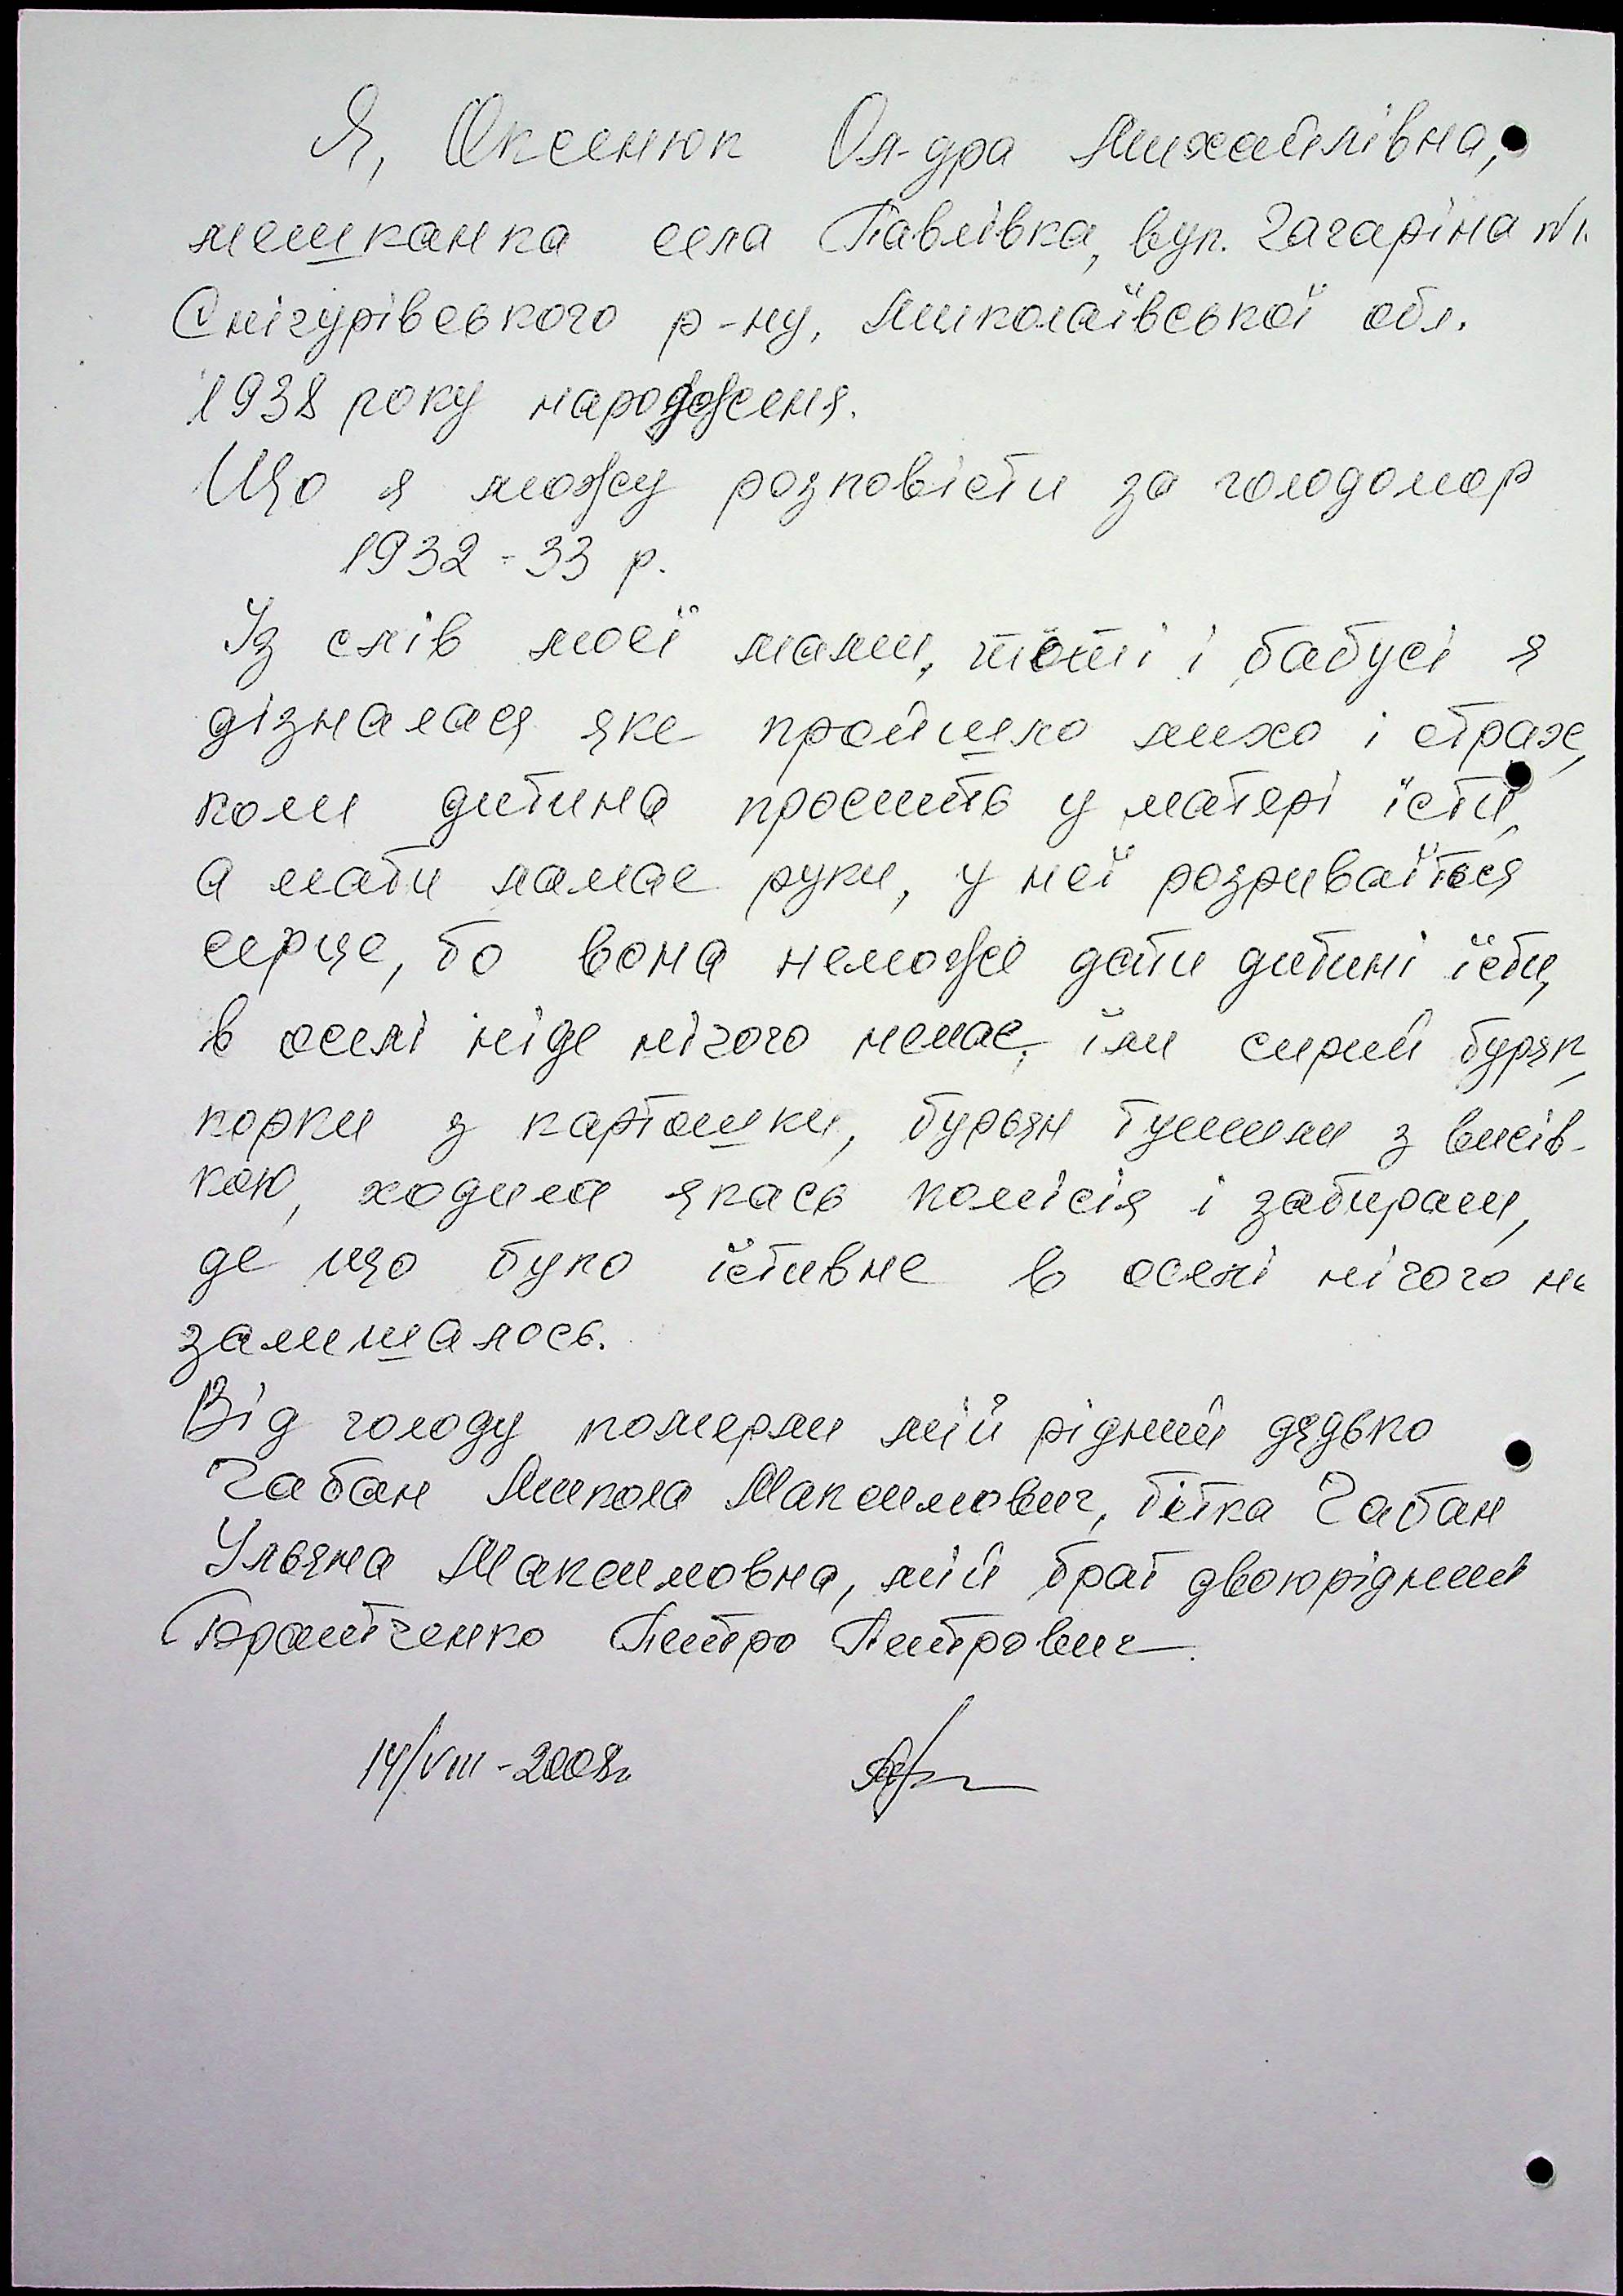 Я, Оксенюк Ол-дра Михайлівна,
мешканка села Павлівка, вул. Гагаріна №1.
Снігурівського р-ну, Миколаївської обл.
1938 року народженя.
Що я можу розповісти за голодомор
1932-33 р.
Із слів моєї мами, тьоті і бабусі я
дізналася яке пройшло лихо і страх,
коли дитина просить у матері їсти,
а мати ламае руки, у неї розриваїться
серце, бо вона неможе дати дитині їсти,
в оселі ніде нічого немає, їли сирий буряк,
корки з картошки, бурьян тушили з висів-
кою, ходила якась комісія і забирали,
де що було їстивне в оселі нічого не
залишалось.
Від голоду померли мій рідний дядько
Чабан Микола Максимович, тітка Чабан
Ульяна Максимовна, мій брат двоюрідний
Петро Петрович.
14/VIII-2008г